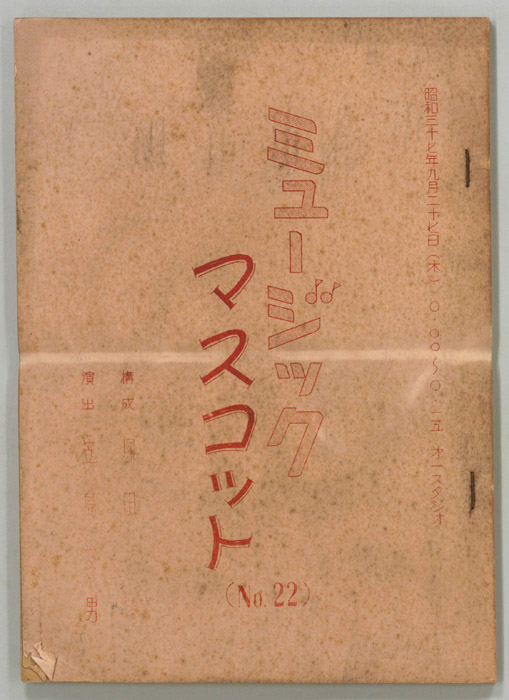 昭和三十七年九月二十七日（木）〇・〇〇〜〇・一五 オ一スタジオ
ミュージック
マスコット
（No. 22）
構成
演出 男